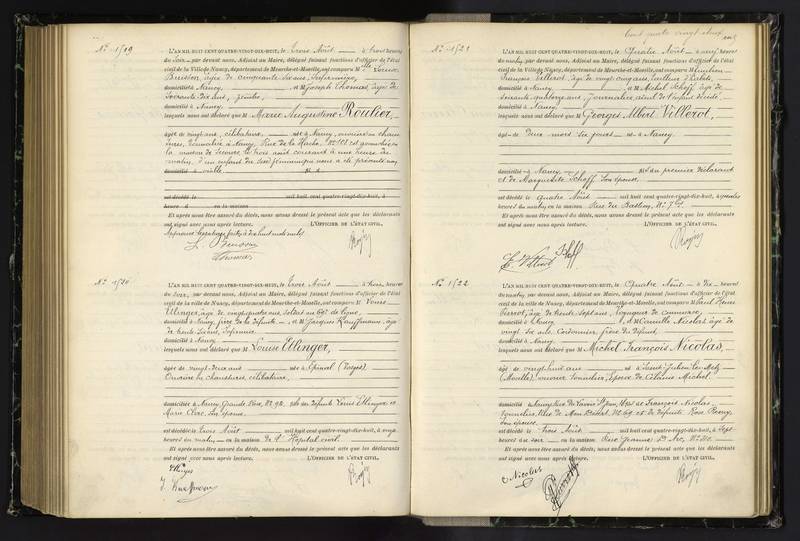 Nº 1519
L'AN MIL HUIT CENT QUATRE-VINGT-DIX-HUIT, le trois Août à trois heures
du soir, par devant nous, Adjoint au Maire, délégué faisant fonctions d'officier de l'état
civil de la Ville de Nancy, département de Meurthe-et-Moselle, ont comparu M
Buisson, âgée de cinquante six ans, Infirmière,
domiciliée à Nancy, et M Joseph Thomas, âgé de
soixante dix ans, 
domicilié à Nancy
lesquels nous ont déclaré que M Marie Augustine Roulier,
âgée de vingt ans, célibataire, née à Nancy, ouvrière en chaus
sures, domiciliée à Nancy, Rue de la Hache, Nº 101 est accouchée en
la maison de secours, le trois août courant à une heure du
matin, d'un enfant du sexe féminin qui nous a été présenté
domicilié à
est décédé le mil huit cent quatre-vingt-dix-huit, à
heures d en la maison
Et après nous être assuré du décès, nous avons dressé le présent acte que les déclarants
ont signé avec nous après lecture. L'OFFICIER DE L'ÉTAT CIVIL,
Nº 1520
L'AN MIL HUIT CENT QUATRE-VINGT-DIX-HUIT, le trois Août à trois heures
du soir, par devant nous, Adjoint au Maire, délégué faisant fonctions d'officier de l'état
civil de la ville de Nancy, département de Meurthe-et-Moselle, ont comparu M Louis
Ellinger, âgé de vingt quatre ans, soldat au 69e de ligne,
domicilié à Nancy, frère de la défunte, et M Jacques Kauffmann, âgé
de trente six ans, Infirmier,
domicilié à Nancy
lesquels nous ont déclaré que M Louise Ellinger,
âgée de vingt deux ans née à Epinal (Vosges)
Ouvrière en chaussures, célibataire,
domiciliée à Nancy Grande Rue, Nº 92, fille des défunts Louis Ellinger et
Marie Clerc, son épouse.
est décédée le trois Août mil huit cent quatre-vingt-dix-huit, à onze
heures du matin, en la maison de l'Hôpital civil.
Et après nous être assuré du décès, nous avons dressé le présent acte que les déclarants
ont signé avec nous après lecture. L'OFFICIER DE L'ÉTAT CIVIL,
Cent quatre vingt deux
Nº 1521
L'AN MIL HUIT CENT QUATRE-VINGT-DIX-HUIT, le quatre Août à neuf heures
du matin, par devant nous, Adjoint au Maire, délégué faisant fonctions d'officier de l'état
civil de la Ville de Nancy, département de Meurthe-et-Moselle, ont comparu M Emilien
François Villerot, âgé de vingt cinq ans, tailleur d'habits,
domicilié à Nancy, et M Michel Schoff, âgé de
soixante quatorze ans, journalier, aïeul de l'enfant décédé,
domicilié à Nancy
lesquels nous ont déclaré que M Georges Albert Villerot,
âgé de deux mois six jours né à Nancy
domicilié à Nancy, fils du premier déclarant
et de Marguerite Schoff son épouse.
est décédé le quatre Août mil huit cent quatre-vingt-dix-huit, à
heures du matin, en la maison Rue du Bastion, Nº 7
Et après nous être assuré du décès, nous avons dressé le présent acte que les déclarants
ont signé avec nous après lecture. L'OFFICIER DE L'ÉTAT CIVIL,
Nº 1522
L'AN MIL HUIT CENT QUATRE-VINGT-DIX-HUIT, le quatre Août à dix heures
du matin, par devant nous, Adjoint au Maire, délégué faisant fonctions d'officier de l'état
civil de la ville de Nancy, département de Meurthe-et-Moselle, ont comparu M Paul Henri
Pierrot, âgé de trente sept ans, voyageur de commerce,
domicilié à Nancy et M Camille Nicolas âgé de
vingt six ans, Cordonnier, frère du défunt
domicilié à Nancy
lesquels nous ont déclaré que M Michel François Nicolas,
âgé de vingt huit ans né à Saint-Julien-les-Metz
(Moselle), ouvrier tonnelier, époux de Célanie Michel,
est décédé le trois Août mil huit cent quatre-vingt-dix-huit, à sept
heures du soir en la maison Rue Jeanne d'Arc, Nº
Et après nous être assuré du décès, nous avons dressé le présent acte que les déclarants
ont signé avec nous après lecture. L'OFFICIER DE L'ÉTAT CIVIL,
C Nicolas